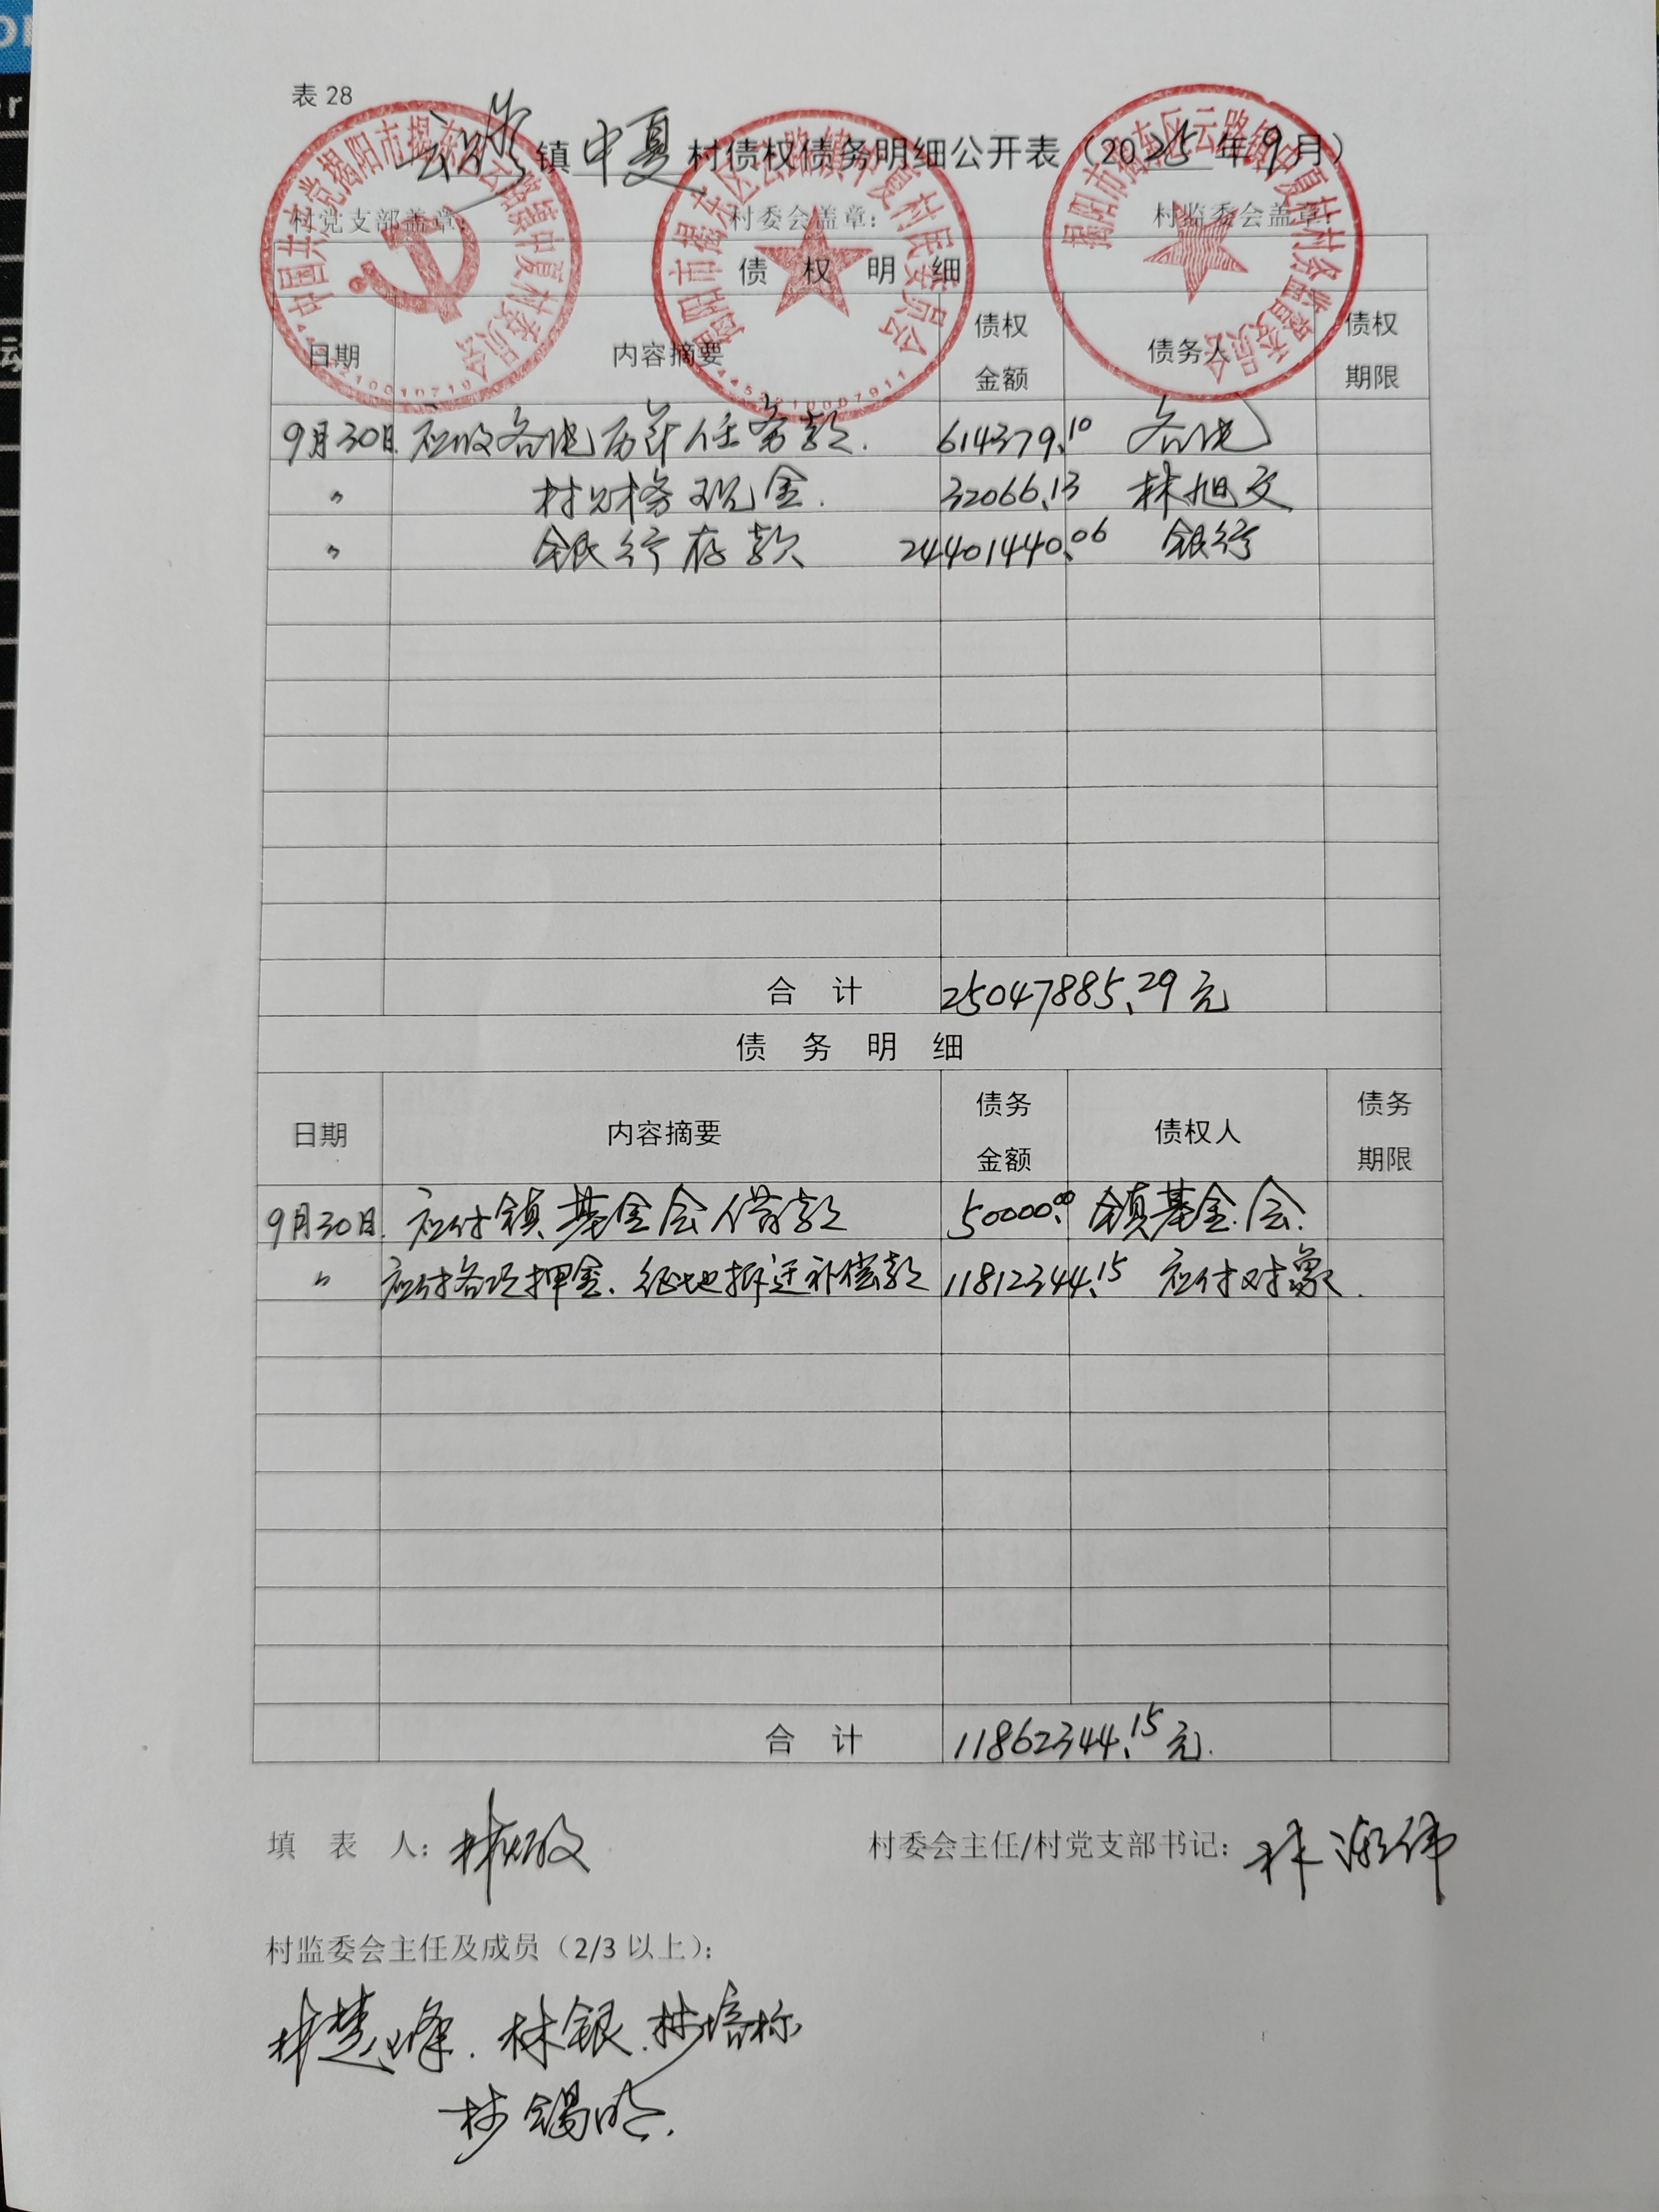 表 28
云路镇中夏村债权债务明细公开表（2025年9月）
村党支部盖章： 村委会盖章： 村监委会盖章：
中国共产党揭阳市揭东区云路镇中夏村委员会
揭阳市揭东区云路镇中夏村民委员会
揭阳市揭东区云路镇中夏村村务监督委员会
债 权 明 细
日期 内容摘要 债权金额 债务人 债权期限
9月30日 应收各地历年任务款. 614379.10
〃 村财务现金. 32066.13 林旭文
〃 银行存款 24401440.06 银行
合 计 25047885.29元
债 务 明 细
日期 内容摘要 债务金额 债权人 债务期限
9月30日. 应付镇基金会借款 50000.00 镇基金会.
〃 应付各项押金、征地拆迁补偿款 11812344.15 应付对象.
合 计 11862344.15元.
填 表 人： 村委会主任/村党支部书记：
村监委会主任及成员（2/3 以上）：
林楚峰. 林银. 林培标
林锡明.